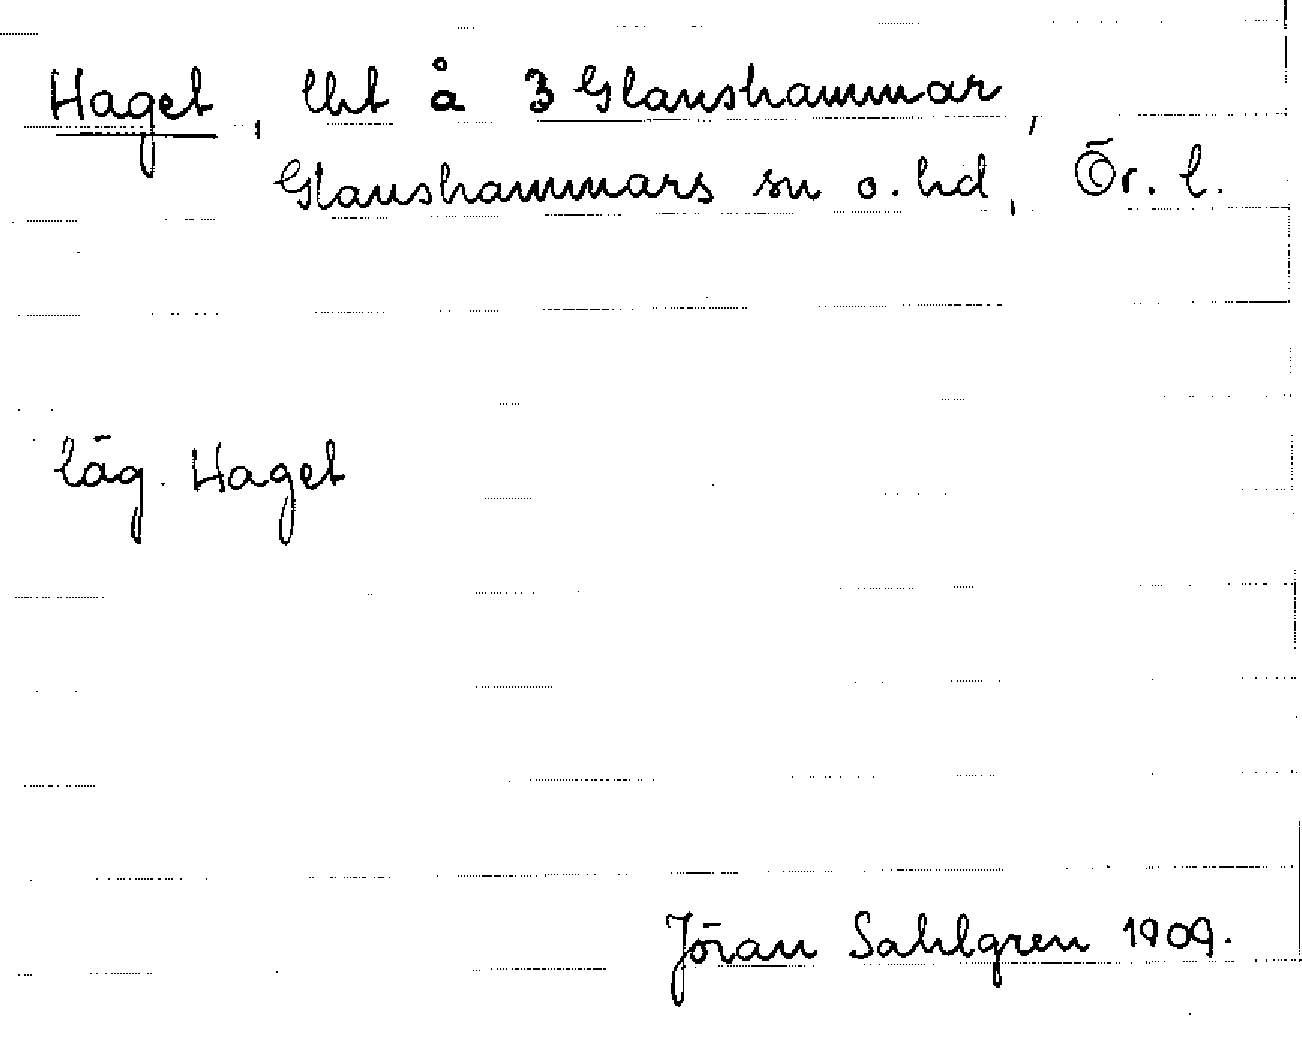 Haget, lht å 3 Glanshammar,
Glanshammars sn o. hd, Ör. l.
läg. Haget
Jöran Sahlgren 1909.